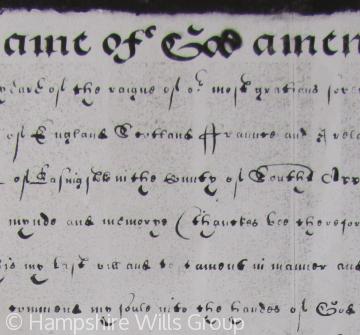 ame of God amen
yeare of the raigne of or most gratious
of England Scotland ffraunce and
of in the County of Southt
mynde and memorye (thanckes bee therefor
my last will and testament in manner and
commend my soule into the handes of God
© Hampshire Wills Group